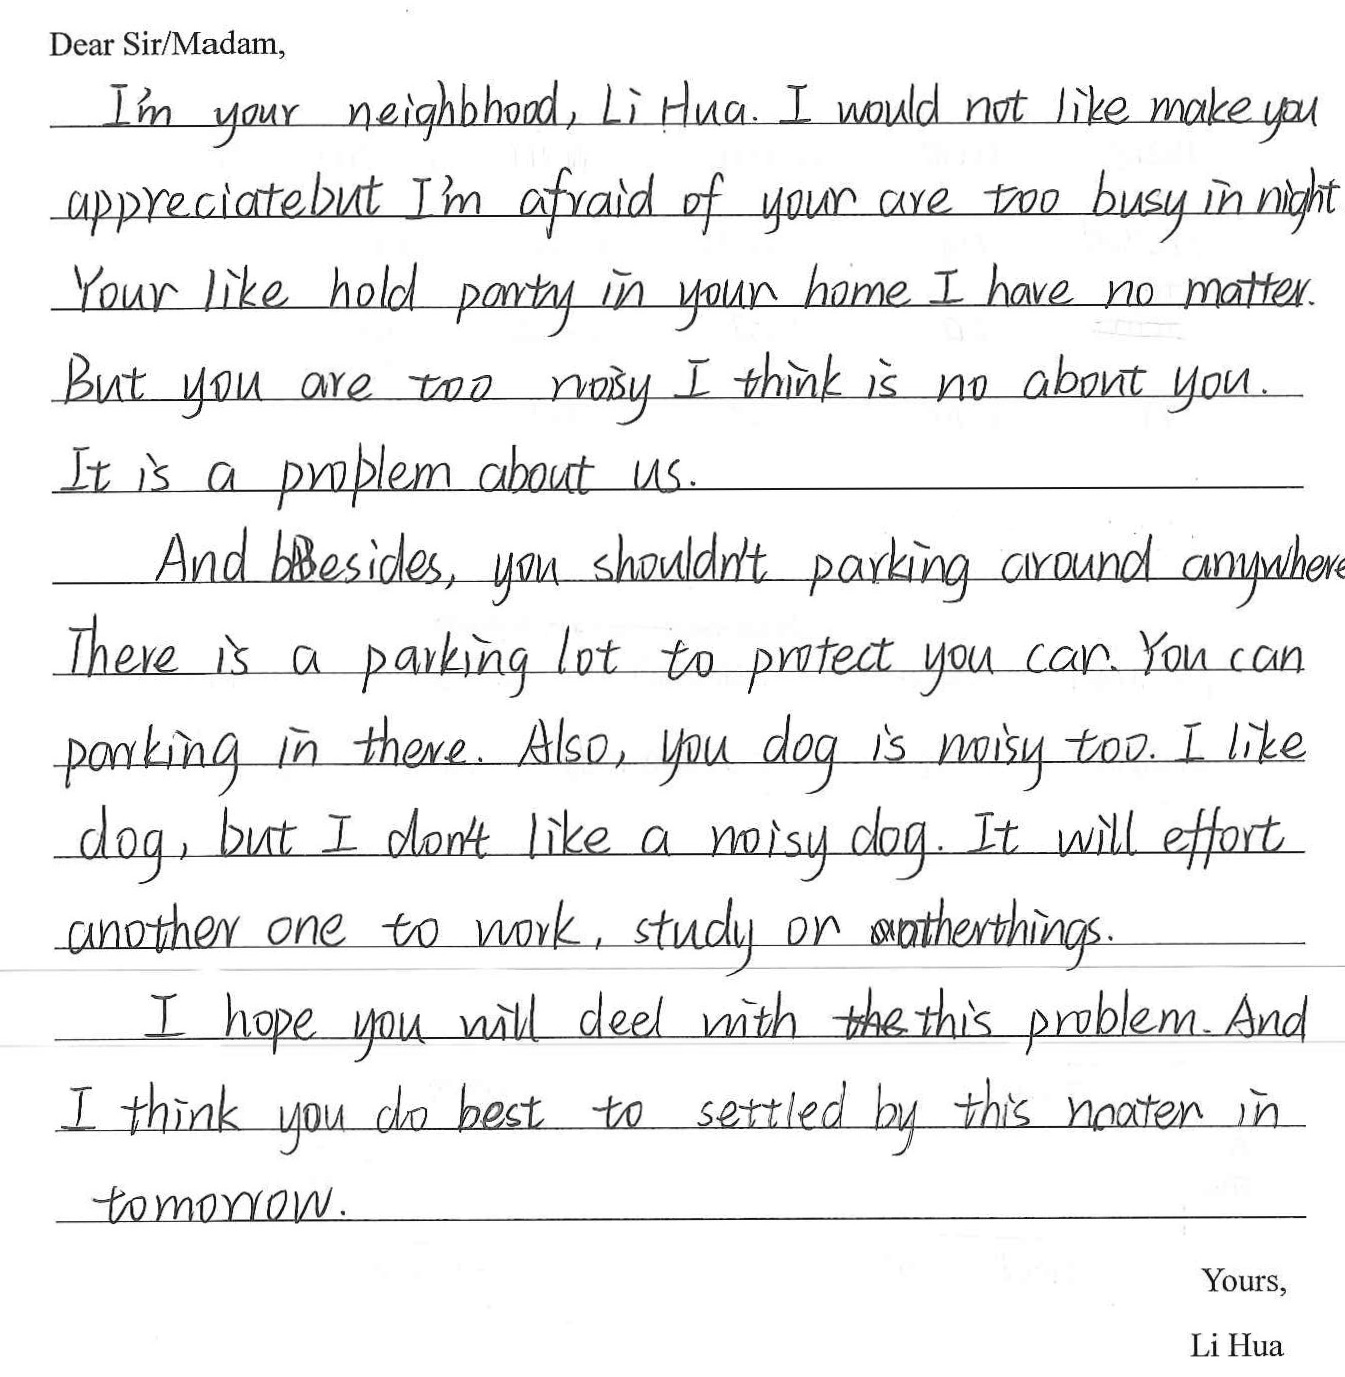 Dear Sir/Madam,
I'm your neighbhood, Li Hua. I would not like make you
appreciate but I'm afraid of your are too busy in night
Your like hold party in your home I have no matter.
But you are too noisy I think is no about you.
It is a problem about us.
And Besides, you shouldn't parking around anywhere
There is a parking lot to protect you car. You can
parking in there. Also, you dog is noisy too. I like
dog, but I don't like a noisy dog. It will effort
another one to work, study or otherthings.
I hope you will deel with the this problem. And
I think you do best to settled by this in
tomorrow.
Yours,
Li Hua